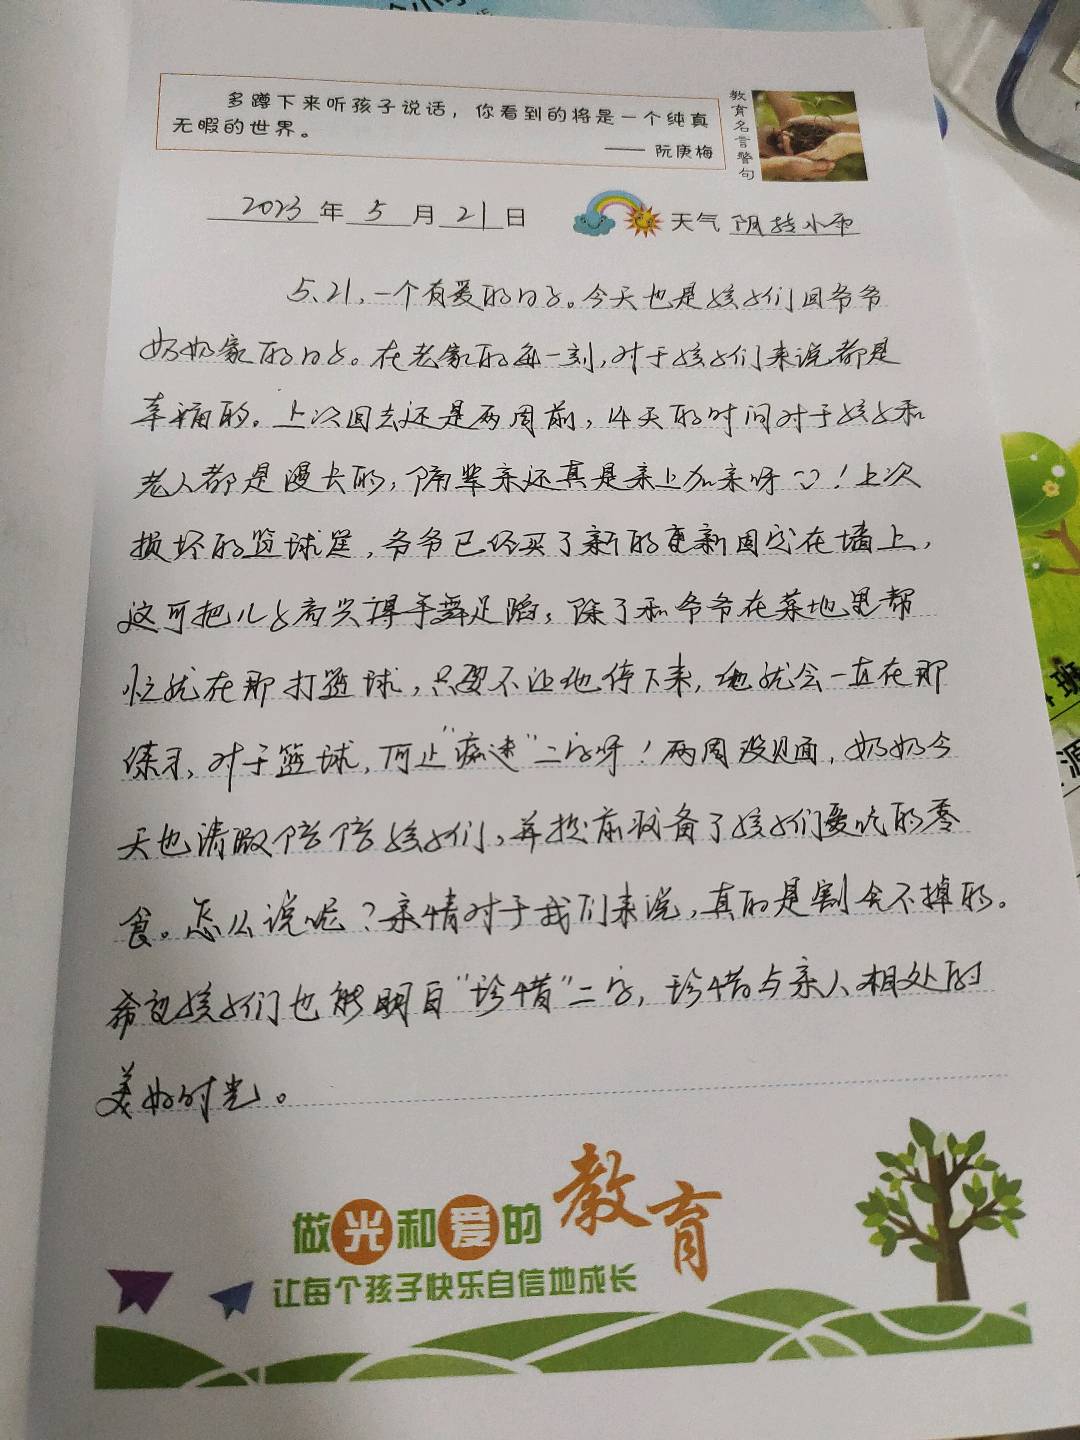 多蹲下来听孩子说话，你看到的将是一个纯真
无暇的世界。
—— 阮庚梅
教育名言警句
2023年5月21日
天气 阴转小雨
5.21,一个有爱的日子。今天也是孩子们回爷爷
奶奶家的日子。在老家的每一刻,对于孩子们来说都是
幸福的。上次回去还是两周前,14天的时间对于孩子和
老人都是漫长的,隔辈亲还真是亲上加亲呀!上次
损坏的篮球筐,爷爷已经买了新的更新固定在墙上,
这可把儿子高兴得手舞足蹈,除了和爷爷在菜地里帮
忙就在那打篮球,只要不让他停下来,他就会一直在那
练习,对于篮球,何止"痴迷"二字呀!两周没见面,奶奶今
天也请假陪陪孩子们,并提前预备了孩子们爱吃的零
食。怎么说呢?亲情对于我们来说,真的是割舍不掉的。
希望孩子们也能明白"珍惜"二字,珍惜与亲人相处的
美好时光。
做光和爱的教育
让每个孩子快乐自信地成长
班
源